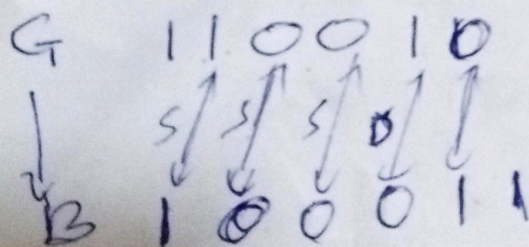 G 1 1 0 0 1 0
S S S D
B 1 0 0 0 1 1